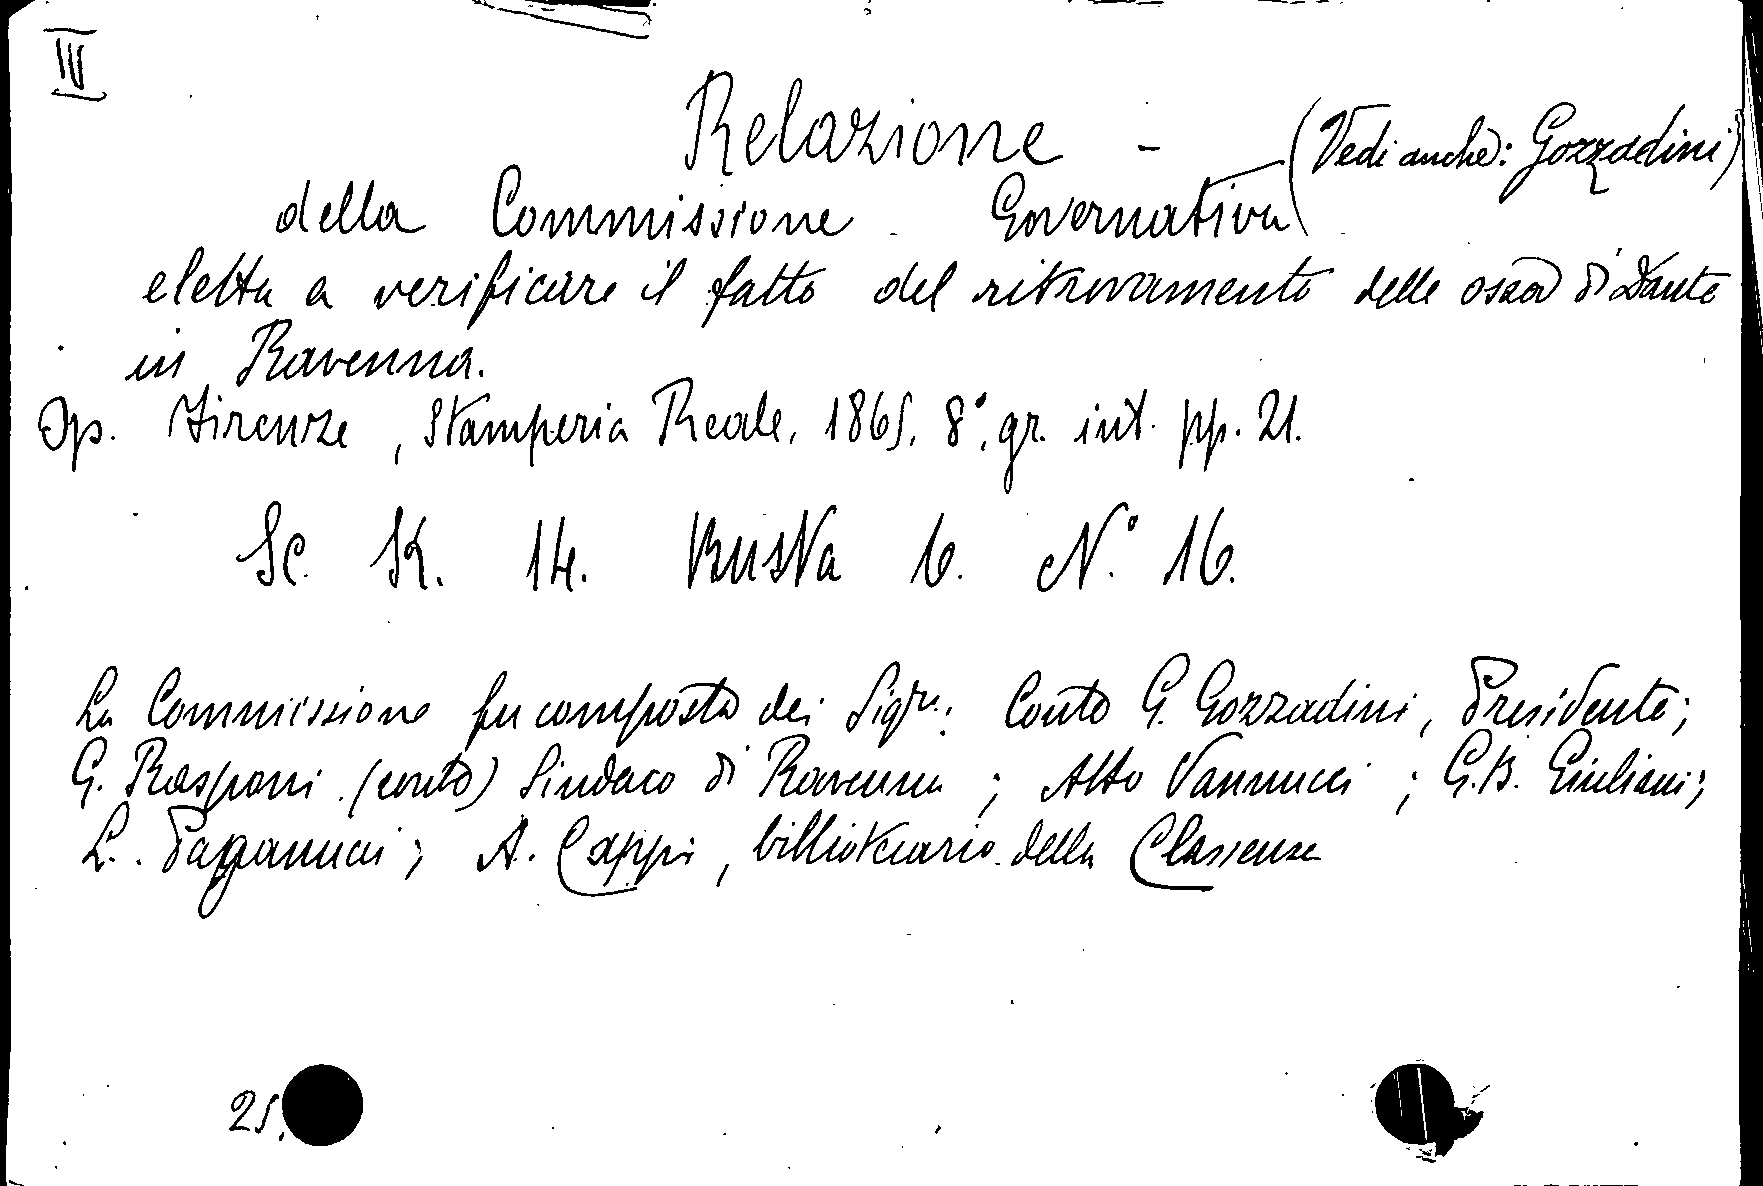 IV
Relazione - (Vedi anche: Gozzadini)
della Commissione Governativa
eletta a verificare il fatto del ritrovamento delle ossa di Dante
in Ravenna.
Op. Firenze, Stamperia Reale, 1865. 8°. gr. int. pp. 21.
Sc. K. 14. Busta 6. N.° 16.
La Commissione fu composta dei Sigri: Conte G. Gozzadini, Presidente;
G. Rasponi (conte) Sindaco di Ravenna; Atto Vannucci; G.B. Giuliani;
L. Paganucci; A. Cappi, bibliotecario della Classense
25.